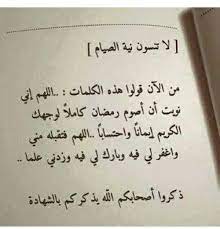 [ لا تنسون نية الصيام ]
من الآن قولوا هذه الكلمات : ..اللهم إني
نويت أن أصوم رمضان كاملاً لوجهك
الكريم إيماناً واحتساباً ..اللهم فتقبله مني
واغفر لي فيه وبارك لي فيه وزدني علما ..
ذكروا أصحابكم الله يذكركم بالشهادة